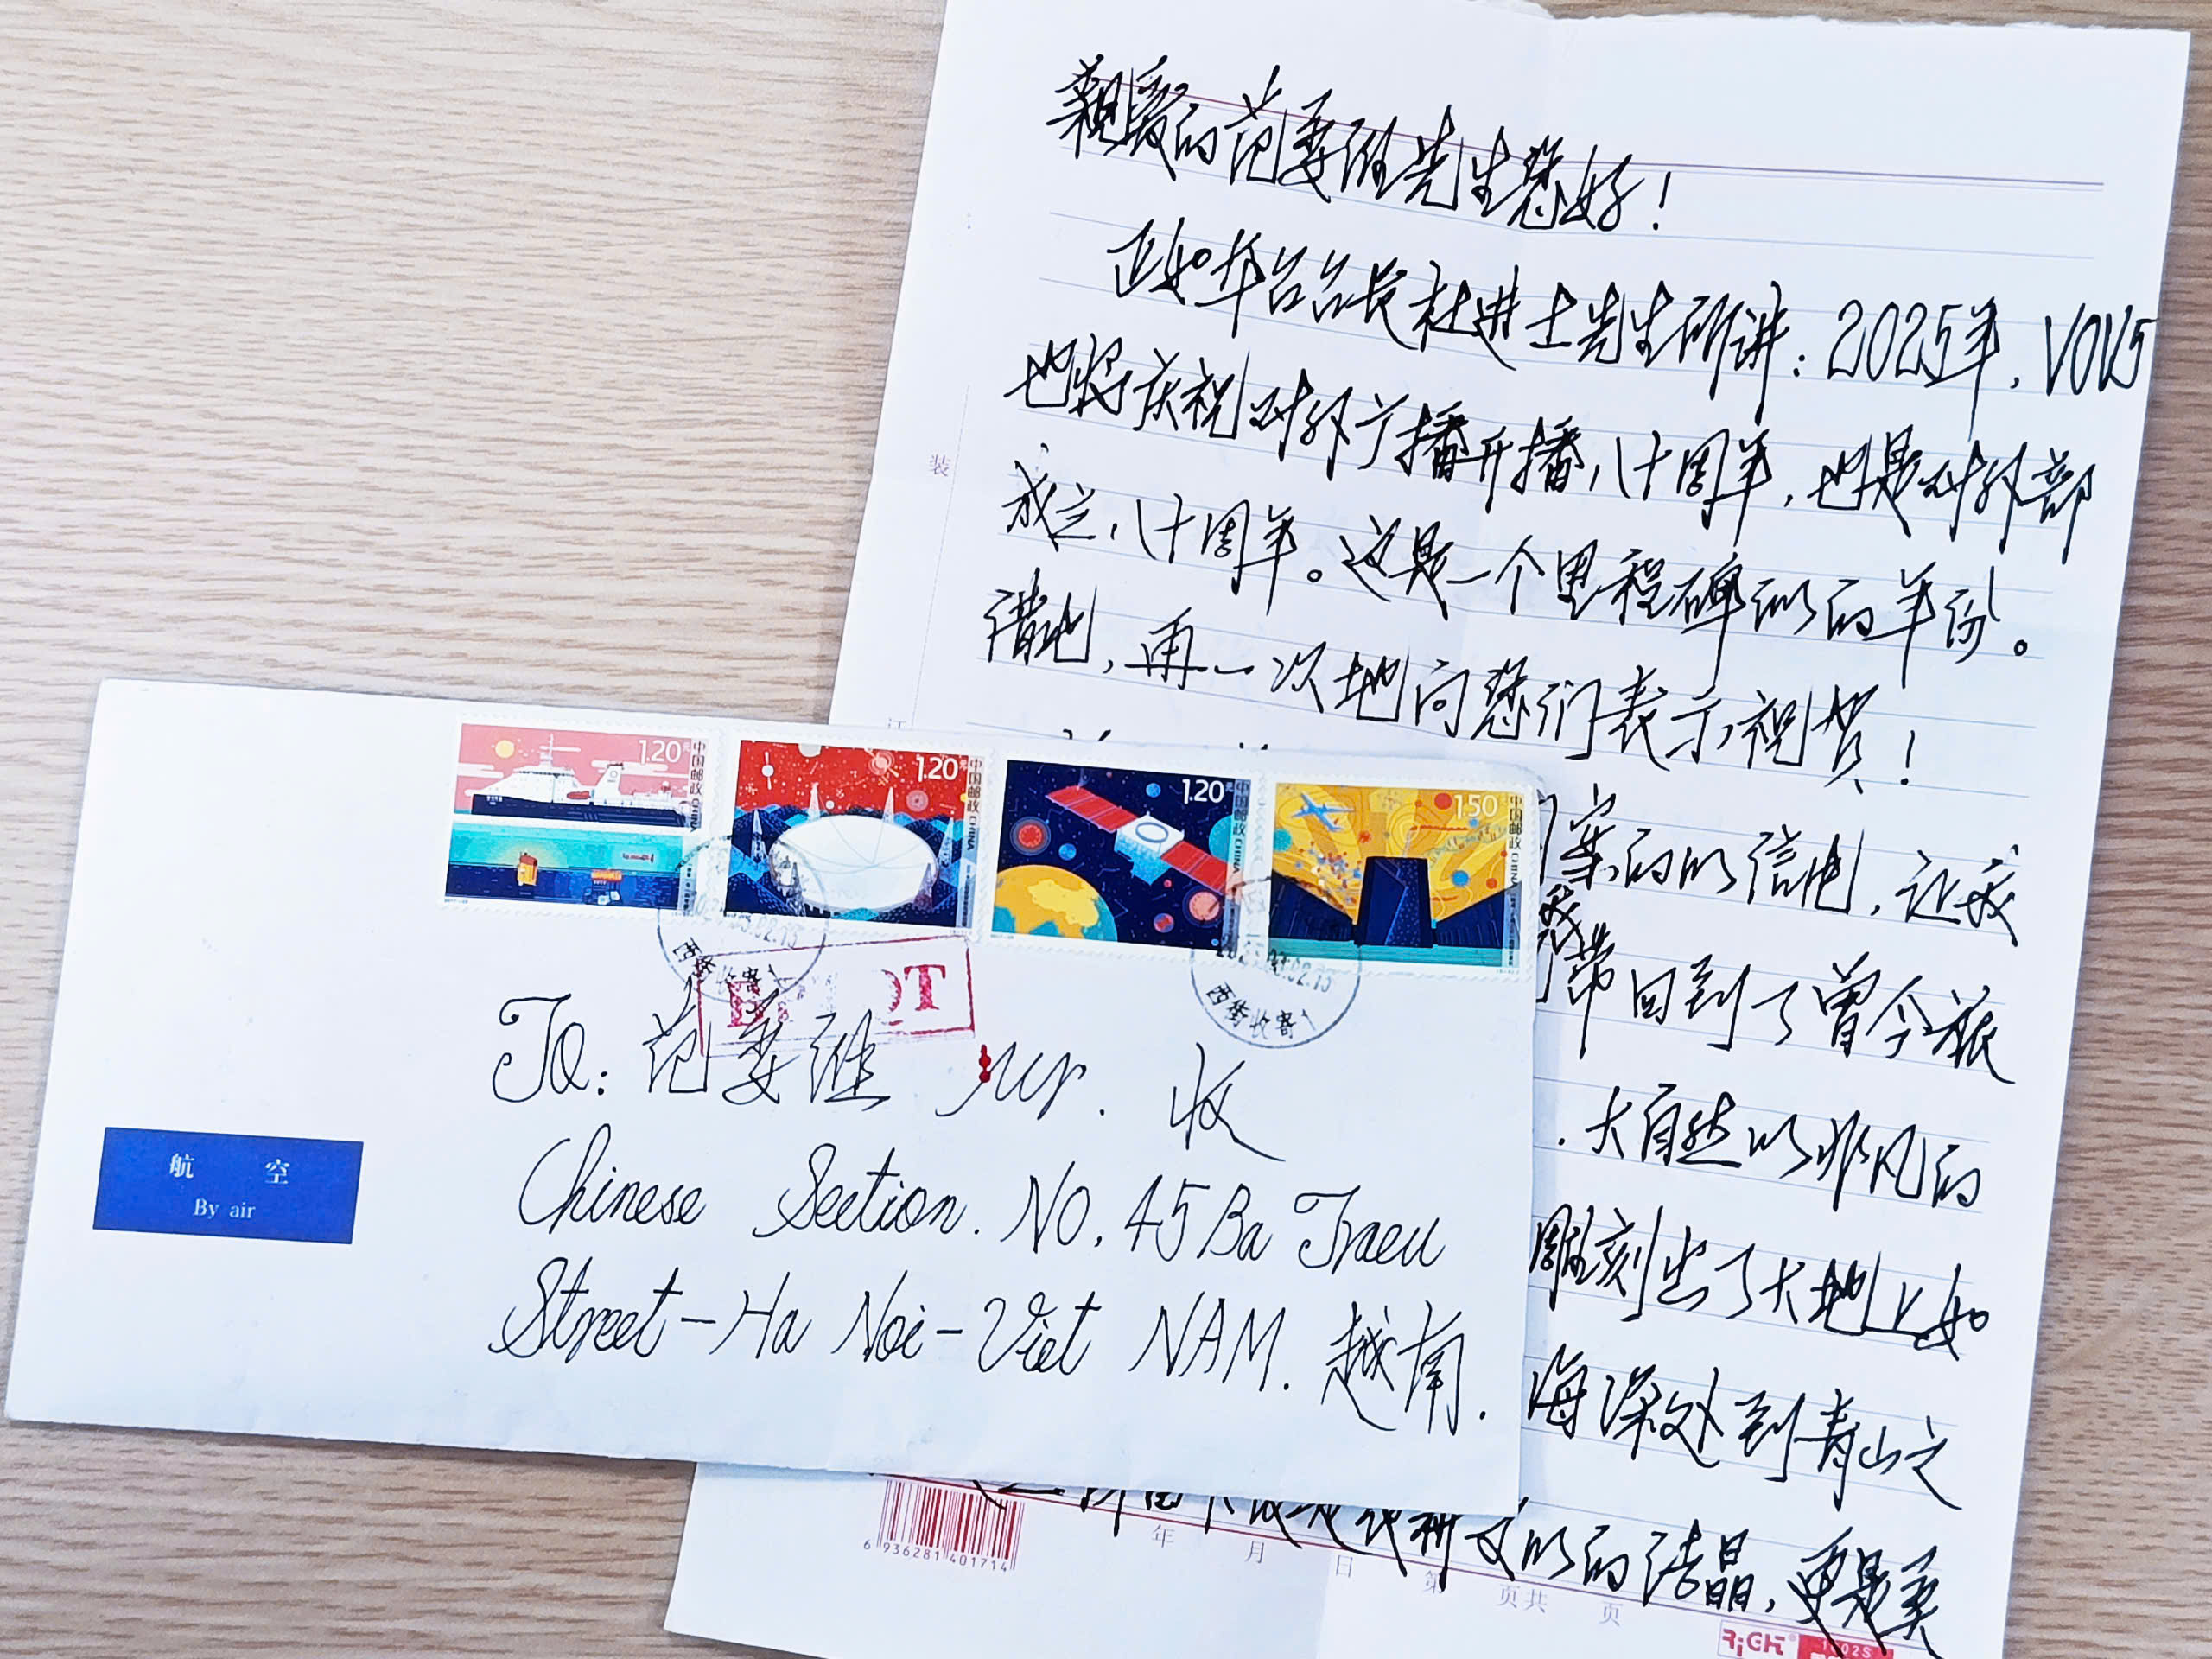 親爱的范
先生您好！
正如华台台长杜进士先生所讲：2025年，VOV5
也将庆祝对外广播开播八十周年，也是对外部
成立八十周年。这是一个里程碑似的年份。
借此，再一次地向您们表示祝贺！
的信电，让我
带回到了曾今旅
．大自然以非凡的
雕刻出了大地上如
海深处到青山之
的结晶，更是
装
订
1.20元
中国邮政 CHINA
1.20元
中国邮政 CHINA
1.20元
中国邮政 CHINA
1.50元
中国邮政 CHINA
西街收寄1
西街收寄1
To: 范 Mr. 收
Chinese Section. NO, 45 Ba Traeu
Street-Ha Noi-Viet NAM. 越南.
航 空
By air
6 936281 401714
年 月 日 第 页共 页